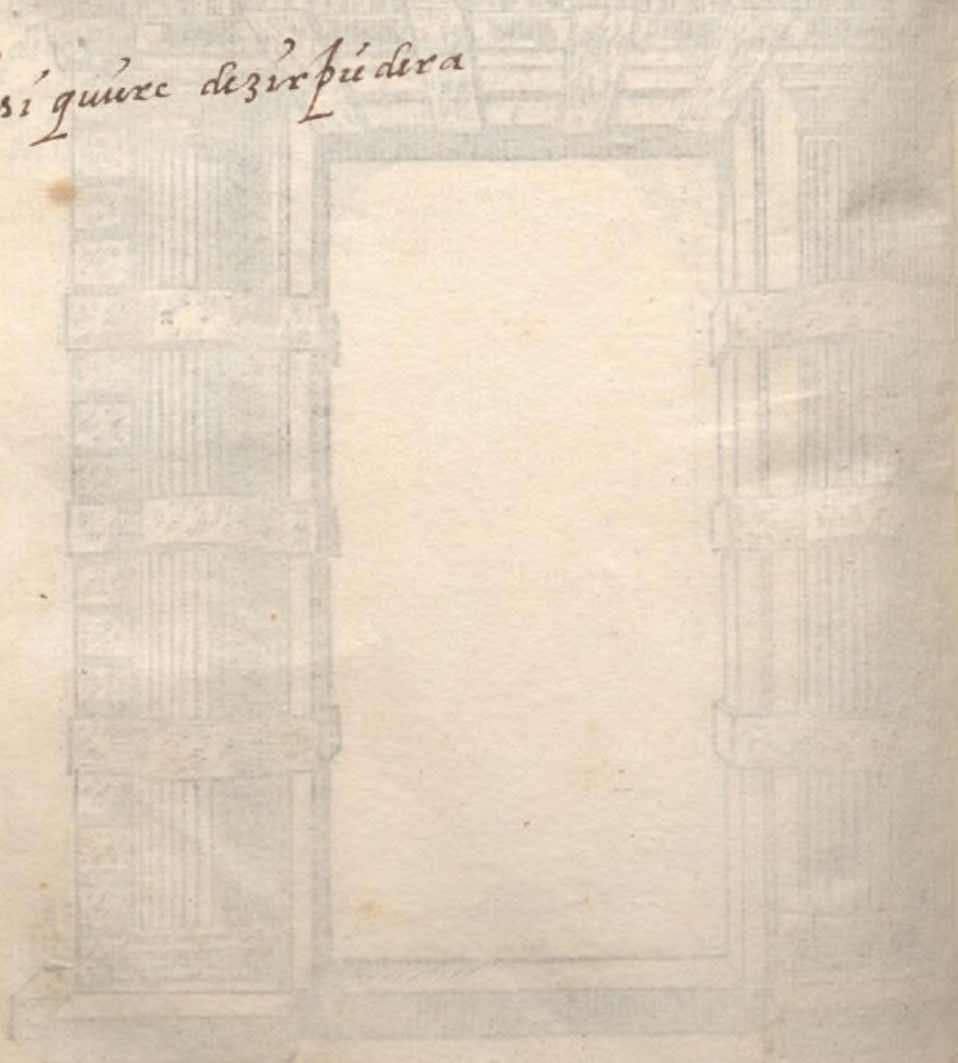 si quure dezir pudera